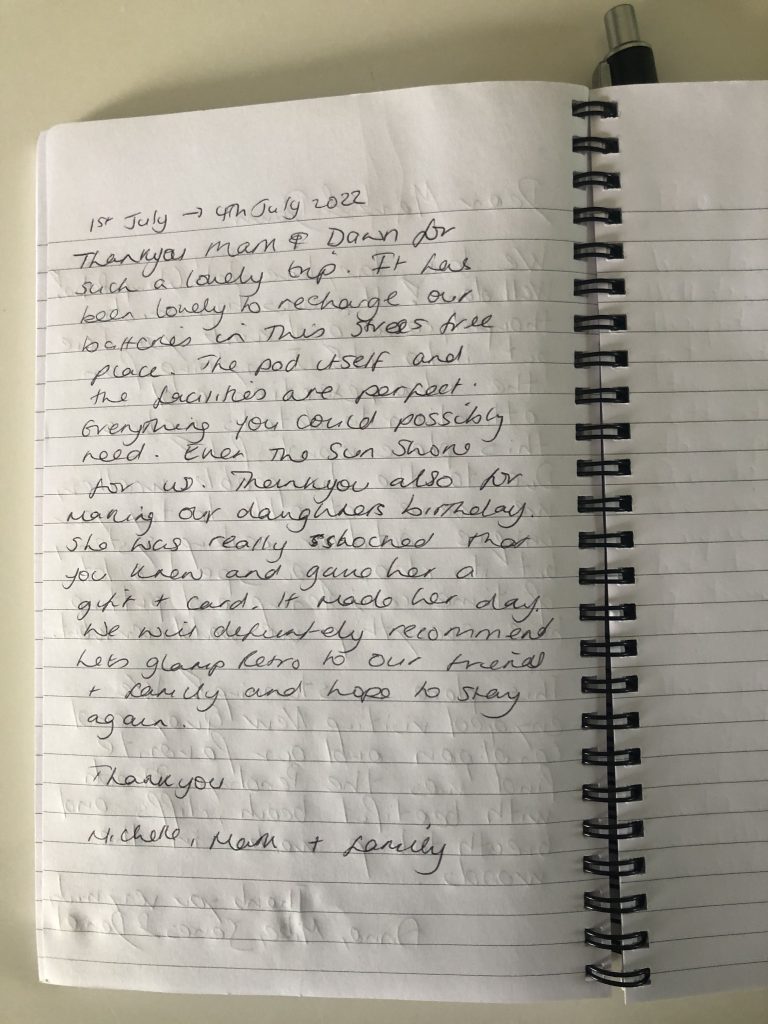 1st July → 4th July 2022
Thankyou Mark & Dawn for
such a lovely trip. It has
been lovely to recharge our
batteries in this strees free
place. The pod itself and
the facilities are perfect.
Everything you could possibly
need. Even the sun shone
for us. Thankyou also for
making our daughters birthday.
She was really sshocked that
you knew and gave her a
gift + card. It made her day.
We will definately recommend
Lets glamp Retro to our friends
+ family and hope to stay
again.
Thankyou
Michelle, Mark + family